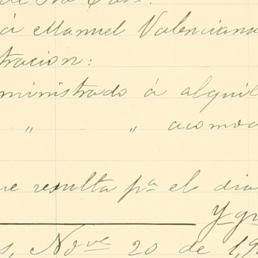 á Manuel Valenciano
tracion:
ministrado á alquil
" " acomo
ue resulta pª el dia
Ygu
s, Nov.e 20 de 1,9